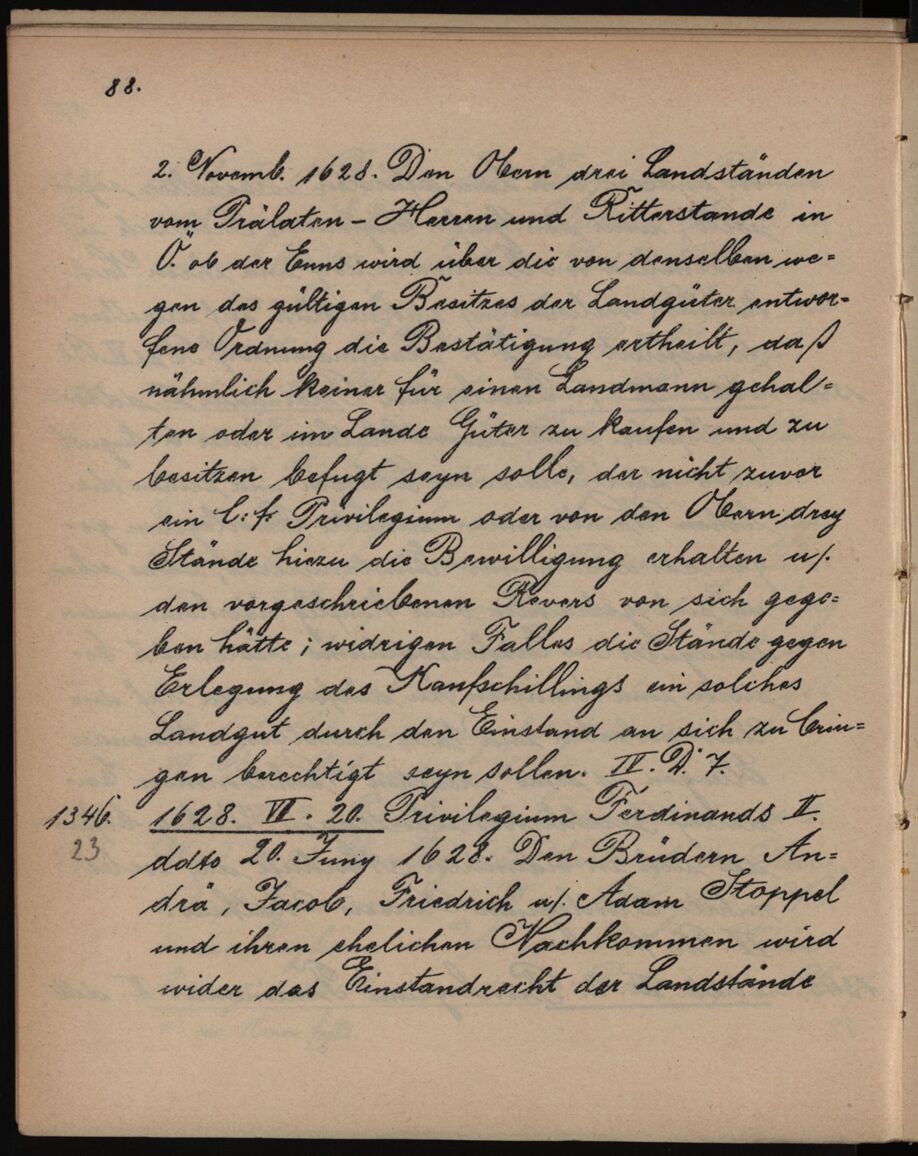 88.
2. Novemb. 1628. Den Obern drei Landständen
vom Prälaten - Herren und Ritterstande in
Ö. ob der Enns wird über die von denselben we=
gen des gültigen Besitzes der Landgüter entwor=
fene Ordnung die Bestätigung ertheilt, daß
nähmlich keiner für einen Landmann gehal=
ten oder im Lande Güter zu kaufen und zu
besitzen befugt seyn solle, der nicht zuvor
ein l: f: Privilegium oder von den Obern drey
Stände hiezu die Bewilligung erhalten u/.
den vorgeschriebenen Revers von sich gege=
ben hätte; widrigen Falles die Stände gegen
Erlegung des Kaufschillings ein solches
Landgut durch den Einstand an sich zu brin=
gen berechtigt seyn sollen. IV. D. 7.
1346. 1628. VII. 20. Privilegium Ferdinands II.
23 ddto 20. Juny 1628. Den Brüdern An=
drä, Jacob, Friedrich u/. Adam Stoppel
und ihren ehelichen Nachkommen wird
wider das Einstandrecht der Landstände